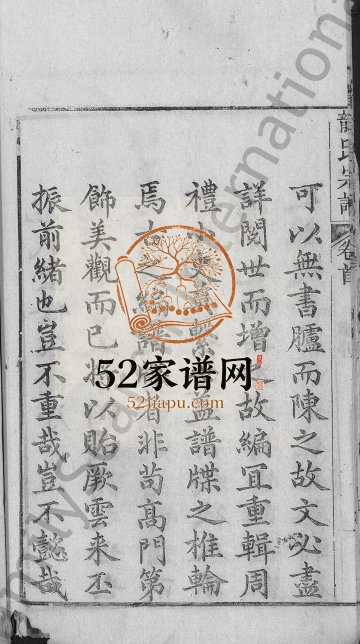 龍氏宗譜 卷首
可以無書臚而陳之故文必盡
詳閱世而增之故編宜重輯周
禮小史 繫 益譜牒之椎輪
焉古之編譜 者非苟高門第
飾美觀而已将以貽厥雲来丕
振前緒也豈不重哉豈不懿哉
52家谱网
52jiapu.com